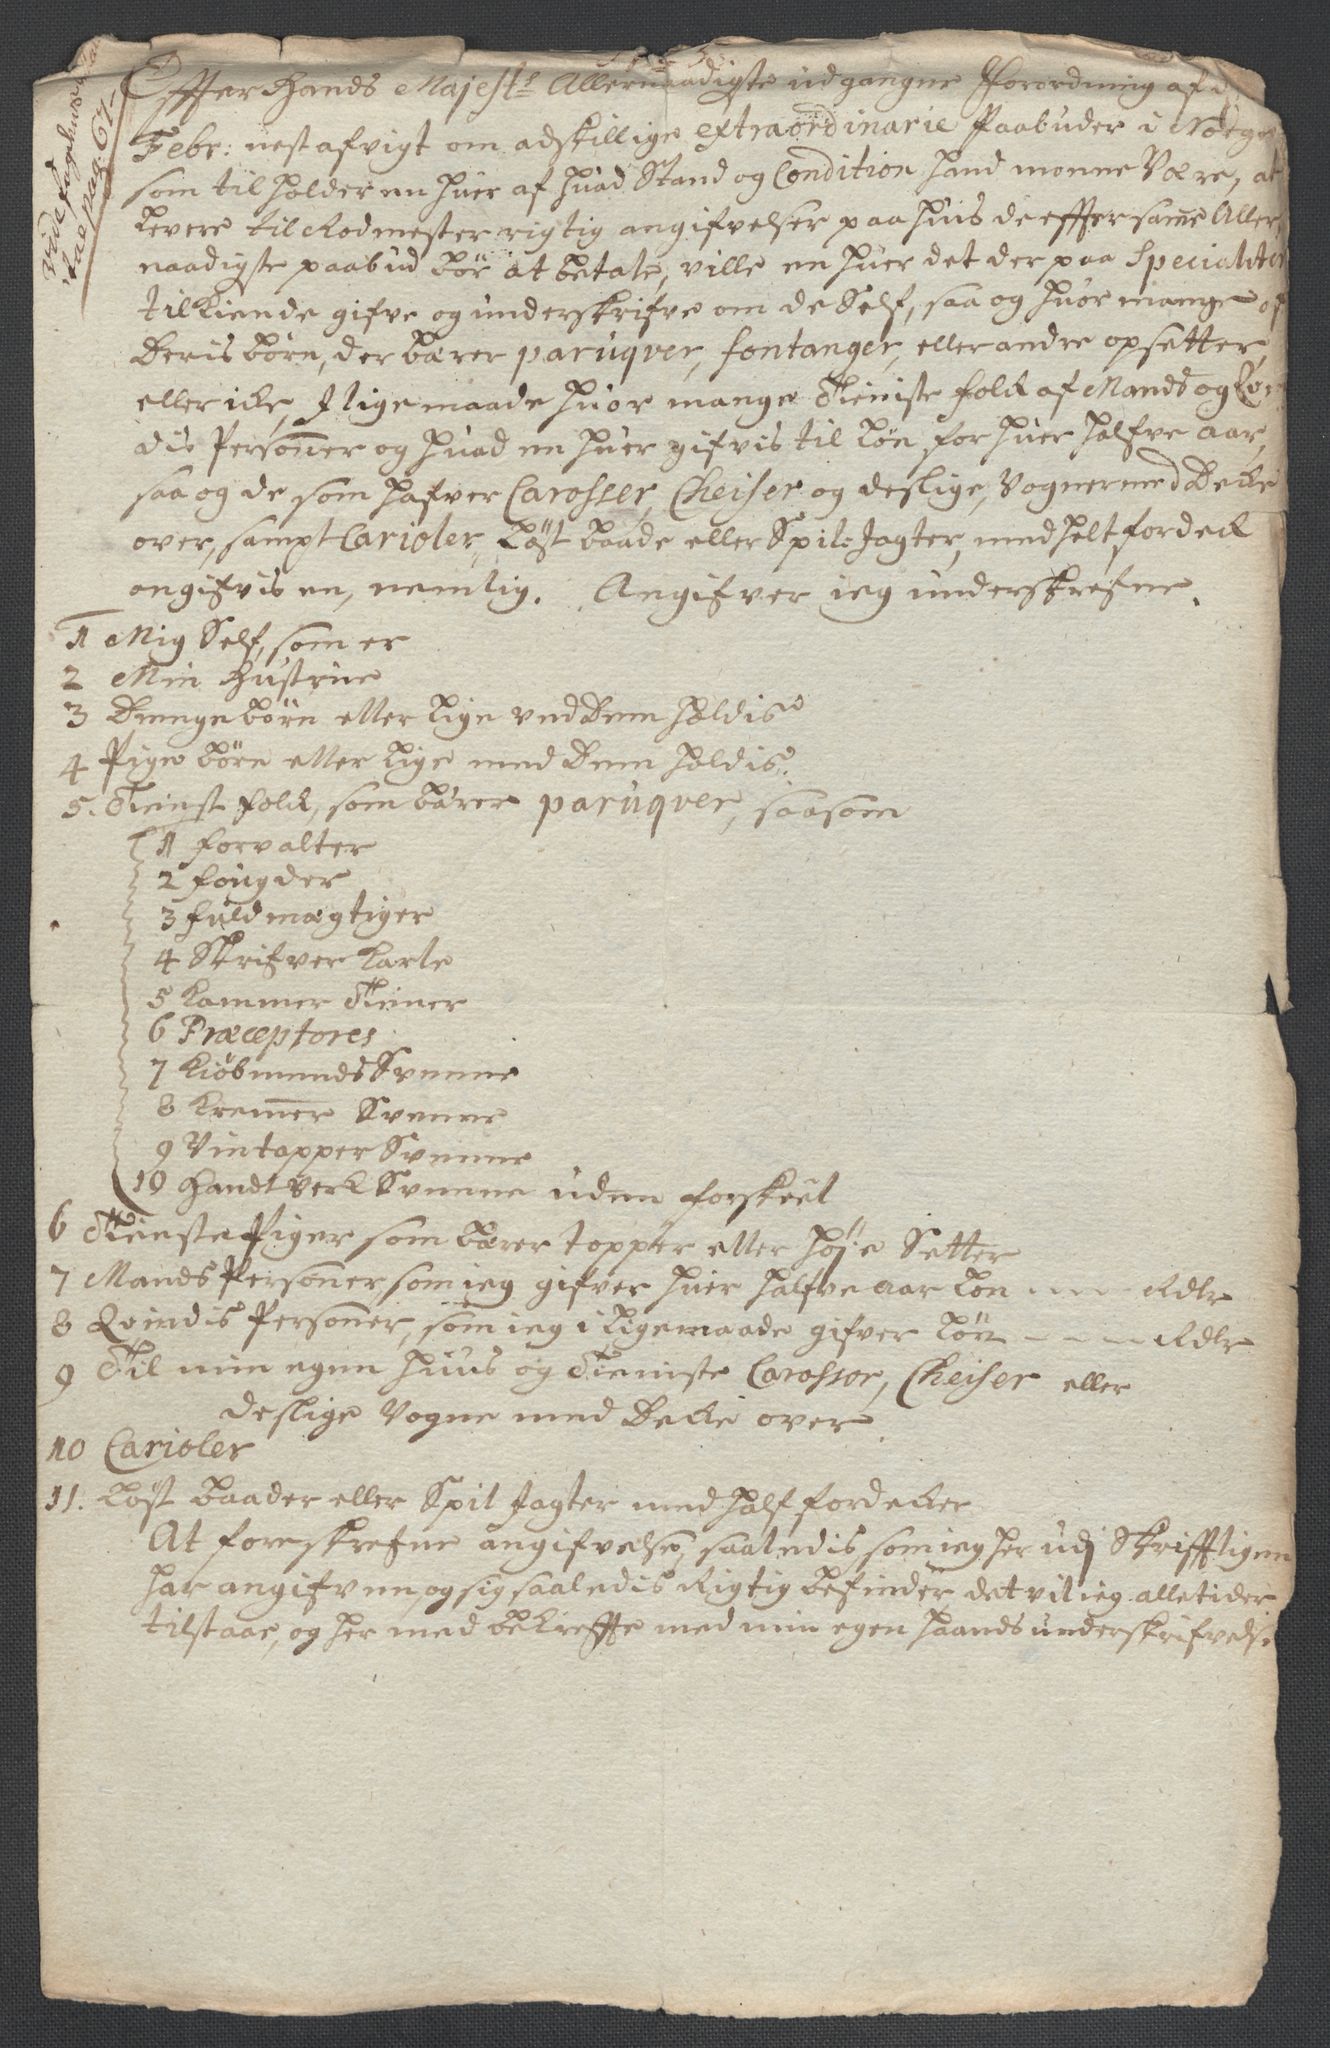 Effter Hands Majestˢ Allernaadigste udgangne Forordning af d
Febr: nest afvigt om adskillige extraordinarie Paabuder i Norge
som tilholder en huer af huad Stand og Condition hand monne Være, at
levere til Rodmester rigtig angifvelser paa huis de effter same Aller,
naadigste paabud bör at betale, ville en huer det der paa Specialiter
tilkiende gifve og underskrifve om de Self, saa og huor mange af
Deris börn, der bærer paruqver, fontanger, eller andre opsetter,
eller icke, Jligemaade huor mange Tieniste folck af Mands og Qvin
dis Personer og huad en huer gifvis til lön for huer halfve aar,
saa og de som hafver Carosser, Cheiser og deslige, Vogner med Decke
over, sampt Carioler, Löst baade eller Spil: Jagter, med helt fordeck
angifvis en, nemlig. Angifver ieg underskrefne.
1 Mig Self, som er
2 Min Hustrue
3 Drenge börn eller lige ved Dem holdis
4 Pige börn eller lige med Dem holdis.
5. Tienst folck, som bærer paruqver, saasom
1 forvalter
2 fougder
3 fuldmægtiger
4 Skrifver Karle
5 Kammer Tiener
6 Præceptores
7 Kiöbmends Svenne
8 Kremer Svenne
9 Vintapper Svenne
10 Handtverk Svenne uden forskeel
6 Tieneste Piger som bærer topper eller höje Setter
7 Mands Personer, som ieg gifver huer halfve aar lön - - - - Rdlr
8 Qvindis Personer, som ieg i ligemaade gifver lön - - - - Rdlr
9 Til min egen huus og Tieniste Carosser, Cheiser eller
deslige Vogne med Decke over.
10 Carioler
11. Löst baader eller Spil Jagter med half fordecker
At foreskrefne angifvelse, saaledis som ieg her udj Skrifftligen
har angifven, og sig saaledis Rigtig befinder, det vil ieg alle tider
tilstaae, og her med bekreffte med min egen haands underskrifvelse